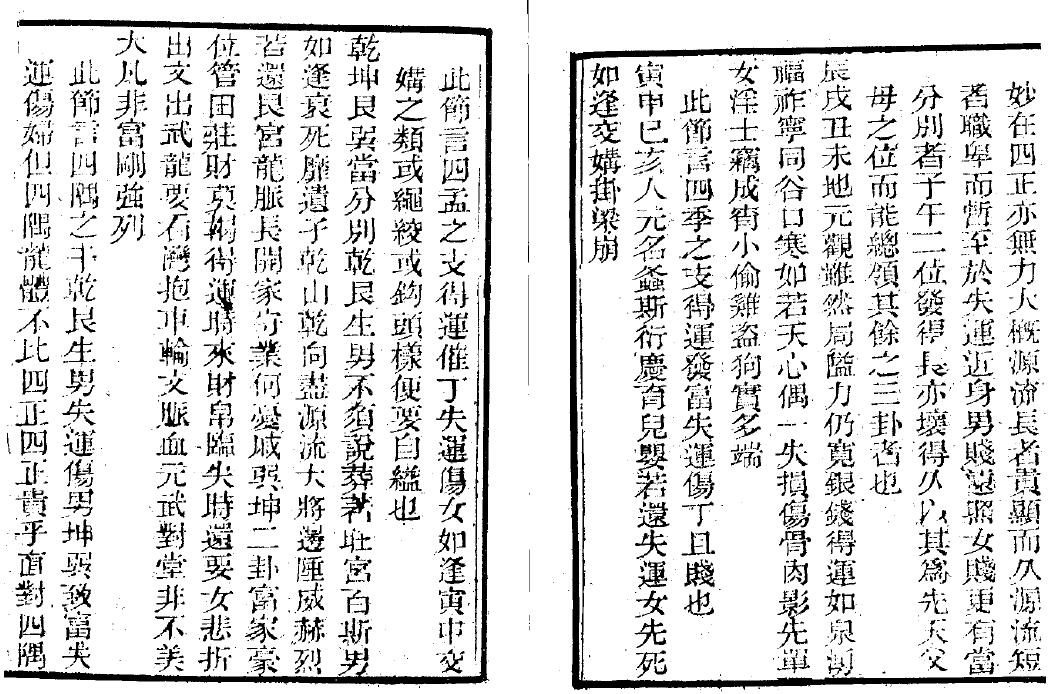 妙在四正亦無力大概源流長者貴顯而久源流短
者職卑而暫至於失運近身男賤遠照女賤更有當
分別者子午二位發得長亦壞得久以其為先天父
母之位而能總領其餘之三卦者也
辰戌丑未地元觀雖然局隘力仍寬銀錢得運如泉湧
福祚寧同谷口寒如若天心偶一失損傷骨肉影先單
女淫士竊成宵小偷雞盜狗實多端
此節言四季之支得運發富失運傷丁且賤也
寅申巳亥人元名螽斯衍慶育兒嬰若還失運女先死
如逢交媾掛梁崩
此節言四孟之支得運催丁失運傷女如逢寅申交
媾之類或繩絞或鈎頭樣便要自縊也
乾坤艮巽當分別乾艮生男不須說葬著壯宮百斯男
如逢衰死靡遺孑乾山乾向盡源流大將邊陲威赫烈
若還艮宮龍脈長開家分業何憂戚巽坤二卦富家豪
位管田莊財莫竭得運時來財帛臨失時還要女悲折
出文出武龍要石灣抱車輪文脈血元武對堂非不美
大凡非富剛強列
此節言四隅之干乾艮生男失運傷男坤巽致富失
運傷婦但四隅龍體不比四正四正貴乎直對四隅